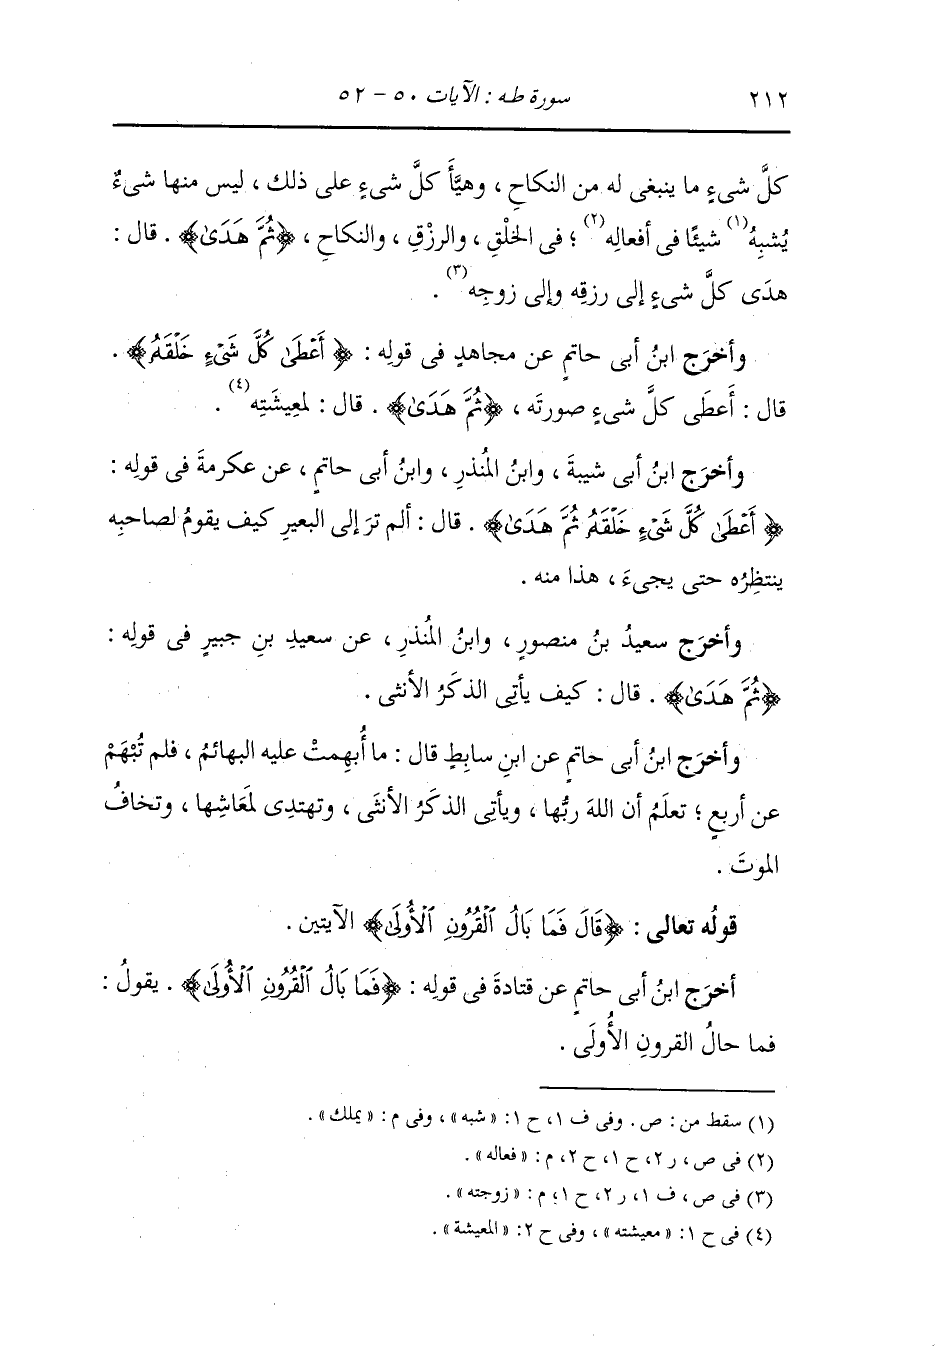 ٢١٢ سورة طه : الآيات ٥٠ - ٥٢
كلَّ شىءٍ ما ينبغى له من النكاحِ ، وهيَّأَ كلَّ شىءٍ على ذلك ، ليس منها شىءٌ
يُشبِهُ(١) شيئًا فى أفعالِه(٢) ؛ فى الخلْقِ ، والرزْقِ ، والنكاحِ ، ﴿ثُمَّ هَدَىٰ﴾ . قال :
هدَى كلَّ شىءٍ إلى رزقِه وإلى زوجِه(٣) .
وأخرَج ابنُ أبى حاتمٍ عن مجاهدٍ فى قولِه : ﴿ أَعْطَىٰ كُلَّ شَىْءٍ خَلْقَهُۥ﴾ .
قال : أَعطَى كلَّ شىءٍ صورتَه ، ﴿ثُمَّ هَدَىٰ﴾ . قال : لمعِيشَتِه(٤) .
وأخرَج ابنُ أبى شيبةَ ، وابنُ المُنذرِ ، وابنُ أبى حاتمٍ ، عن عكرمةَ فى قولِه :
﴿ أَعْطَىٰ كُلَّ شَىْءٍ خَلْقَهُۥ ثُمَّ هَدَىٰ﴾ . قال : ألم ترَ إلى البعيرِ كيف يقومُ لصاحبِه
ينتظِرُه حتى يجىءَ ، هذا منه .
وأخرَج سعيدُ بنُ منصورٍ ، وابنُ المُنذرِ ، عن سعيدِ بنِ جبيرٍ فى قولِه :
﴿ثُمَّ هَدَىٰ﴾ . قال : كيف يأتِى الذكَرُ الأنثى .
وأخرَج ابنُ أبى حاتمٍ عن ابنِ سابِطٍ قال : ما أُبهِمتْ عليه البهائمُ ، فلم تُبْهَمْ
عن أربعٍ ؛ تعلَمُ أن اللهَ ربُّها ، ويأتِى الذكَرُ الأنثَى ، وتهتدِى لمَعَاشِها ، وتخافُ
الموتَ .
قولُه تعالى : ﴿قَالَ فَمَا بَالُ ٱلْقُرُونِ ٱلْأُولَىٰ﴾ الآيتين .
أخرَج ابنُ أبى حاتمٍ عن قتادةَ فى قولِه : ﴿فَمَا بَالُ ٱلْقُرُونِ ٱلْأُولَىٰ﴾ . يقولُ :
فما حالُ القرونِ الأُولَى .
(١) سقط من : ص . وفى ف ١ ، ح ١ : « شبه » ، وفى م : « يملك » .
(٢) فى ص ، ر ٢ ، ح ١ ، ح ٢ ، م : « فعاله » .
(٣) فى ص ، ف ١ ، ر ٢ ، ح ١ ، م : « زوجته » .
(٤) فى ح ١ : « معيشته » ، وفى ح ٢ : « المعيشة » .